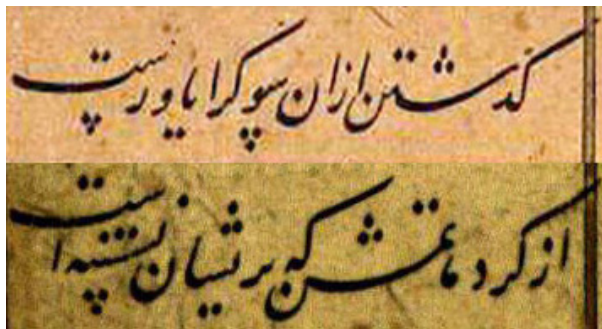 گذشتن ازان سو کرا یاورست
از گرد ماتمش که پریشان نشسته است